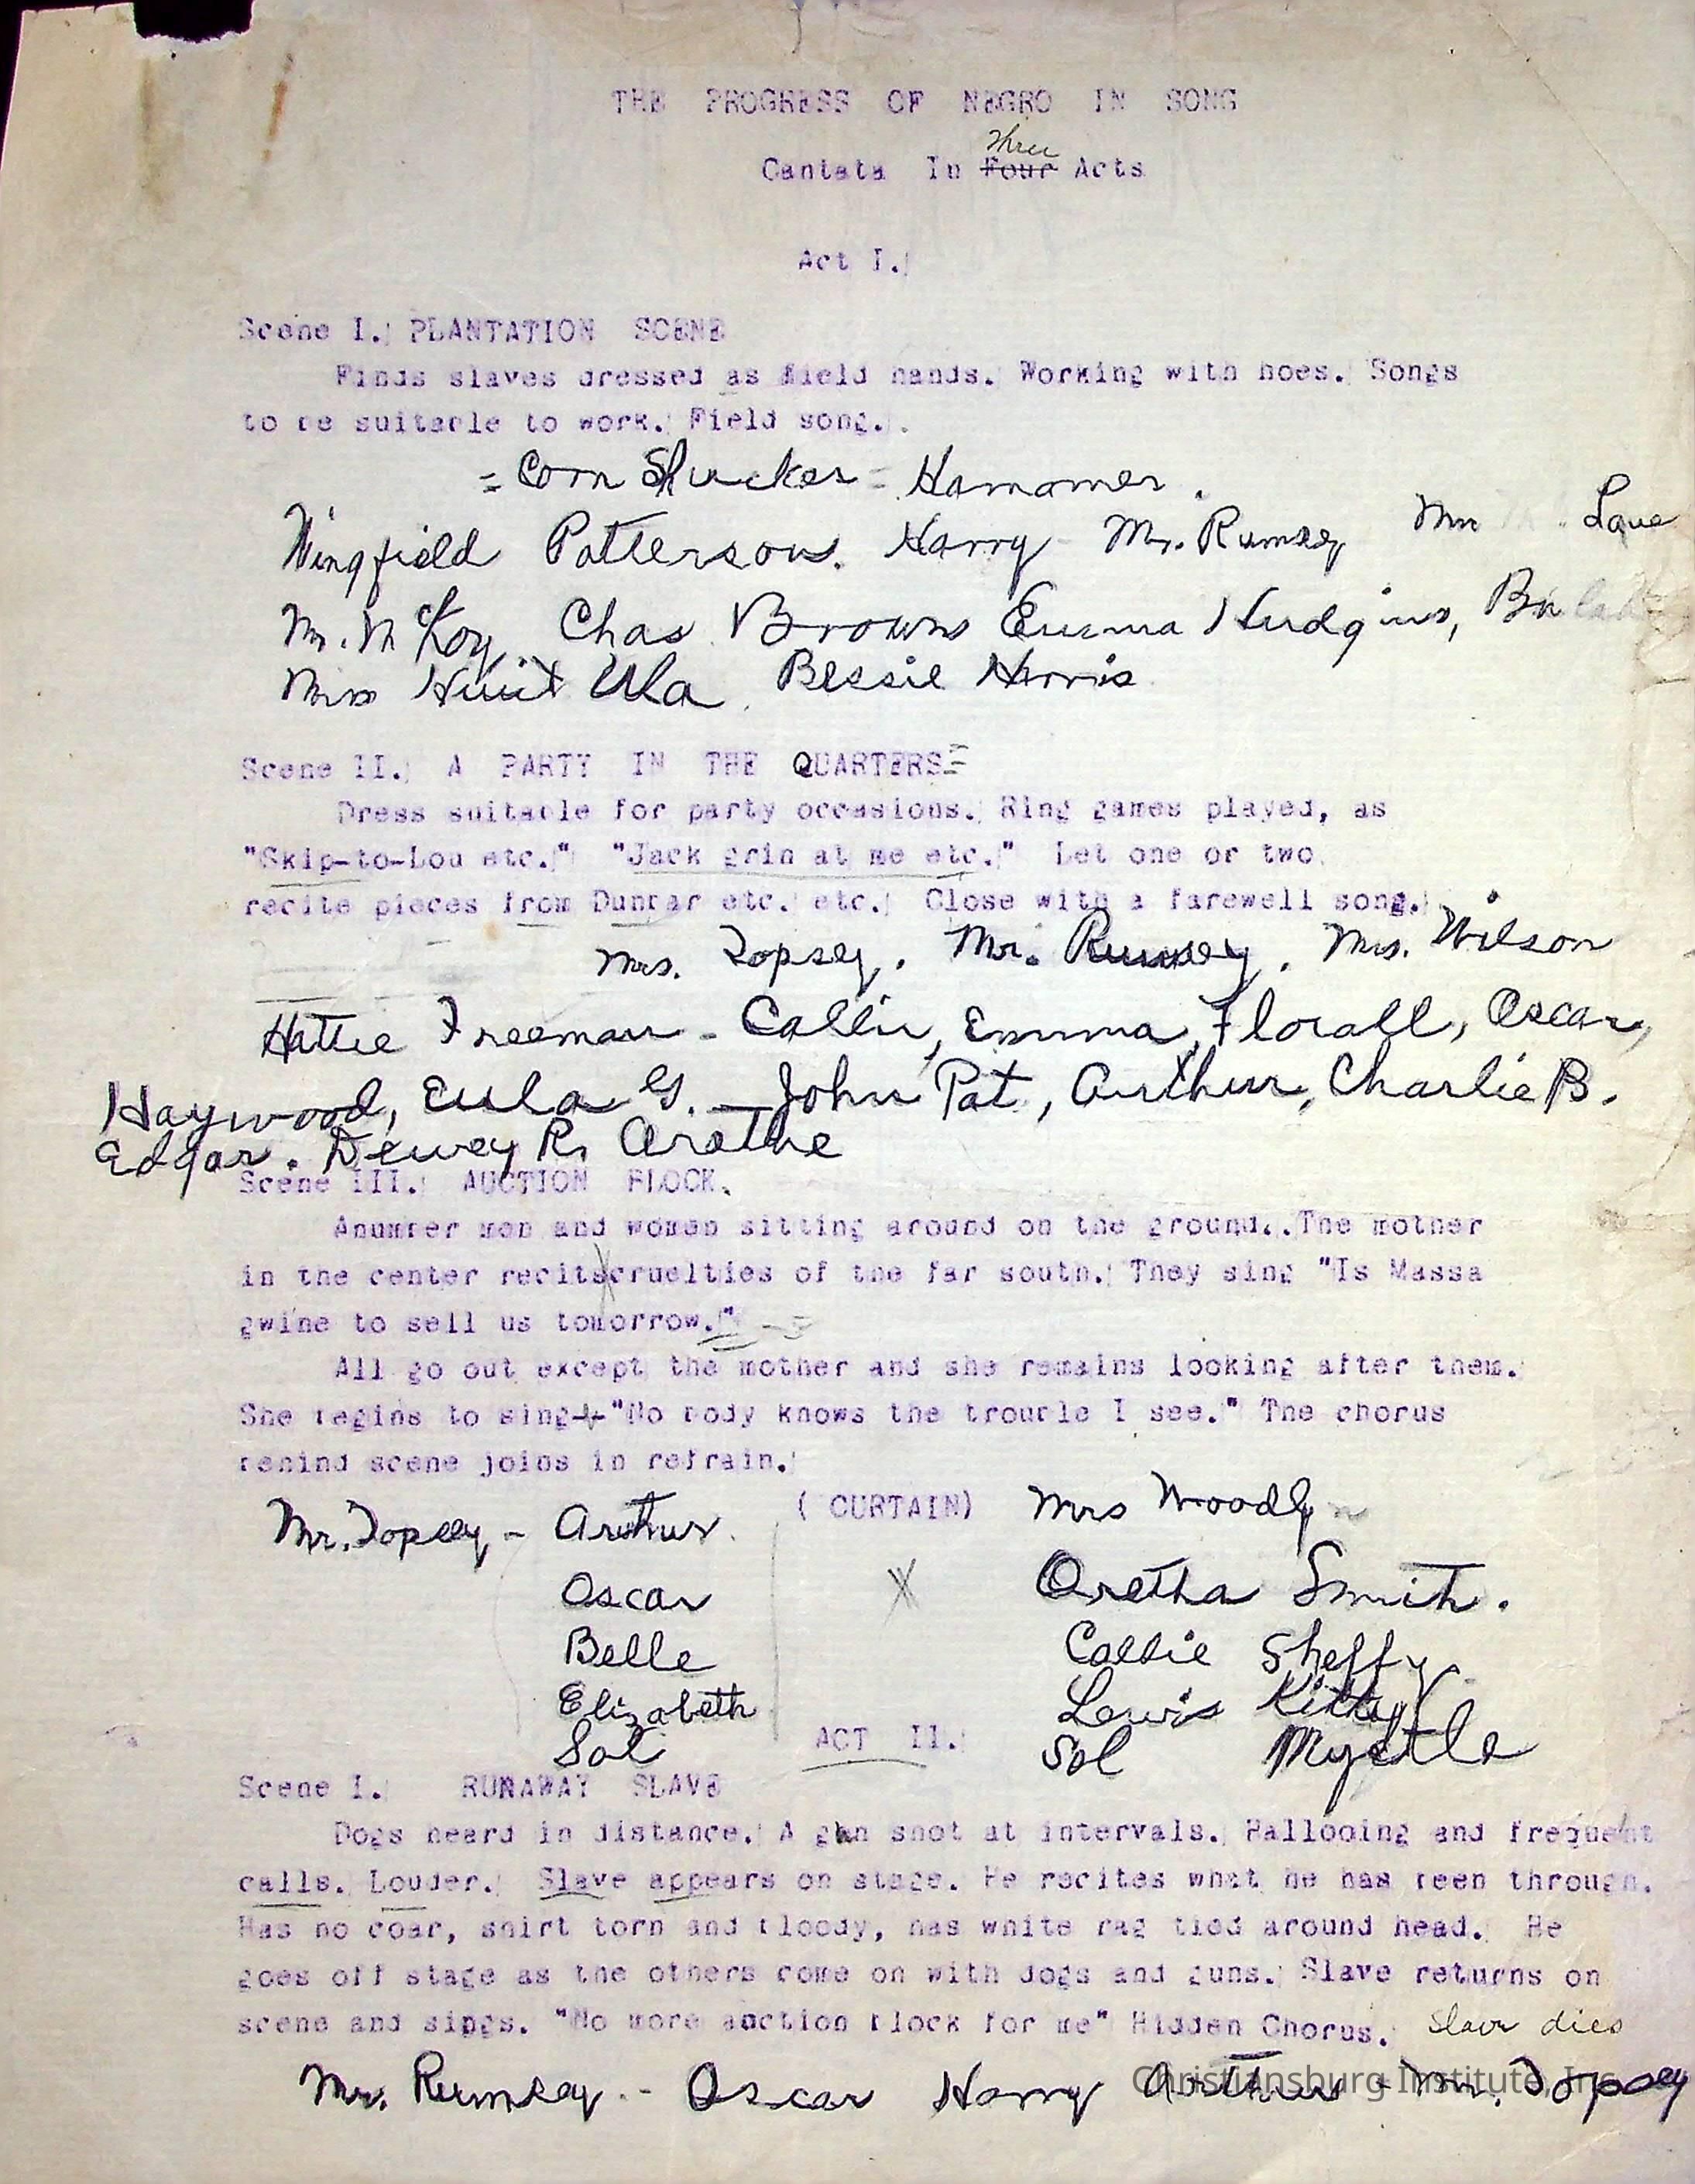 THE PROGRESS OF NEGRO IN SONG
Three
Cantata In Four Acts
Act I.
Scene I. PLANTATION SCENE
Finds slaves dressed as field hands. Working with hoes. Songs
to be suitable to work. Field song.
= Corn Shuckes - Hamamer.
Wingfield Patterson. Harry Mr. Rumsey Mrs Lave
Mr. McKoy. Chas Browns Emma Hudgins,
Miss Hunt Ula. Bessie Harris
Scene II. A PARTY IN THE QUARTERS
Dress suitable for party occasions. Ring games played, as
"Skip-to-Lou etc." "Jack grin at me etc." Let one or two
recite pieces from Dunbar etc. etc. Close with a farewell song.
Mrs. Topsey. Mr. Rumsey. Mrs. Wilson
Hattie Freeman - Callie, Emma, Florall, Oscar,
Haywood, Eula G. - John Pat, Arthur, Charlie B.
Edgar. Dewey R. Arathe
Scene III. AUCTION BLOCK.
Anumber men and women sitting around on the ground..The mother
in the center recitscruelties of the far south. They sing "Is Massa
gwine to sell us tomorrow."
All go out except the mother and she remains looking after them.
She begins to sing "No body knows the trouble I see." The chorus
behind scene joins in refrain.
(CURTAIN) Mrs Woodly
Mr. Topsey - Arthur.
Oscar X Oretha Smith.
Belle Callie Sheffy
Elizabeth Lewis Kitty
Sol ACT II. Sol Myrtle
Scene I. RUNAWAY SLAVE
Dogs heard in distance. A gun shot at intervals. Hallooing and frequent
calls. Louder. Slave appears on stage. He recites what he has been through.
Has no coar, shirt torn and bloody, has white rag tied around head. He
goes off stage as the others come on with dogs and guns. Slave returns on
scene and sings. "No more auction block for me" Hidden Chorus. Slave dies
Mr. Rumsey - Oscar Harry Arthur - Mr. Topsey
Christiansburg Institute, Inc.